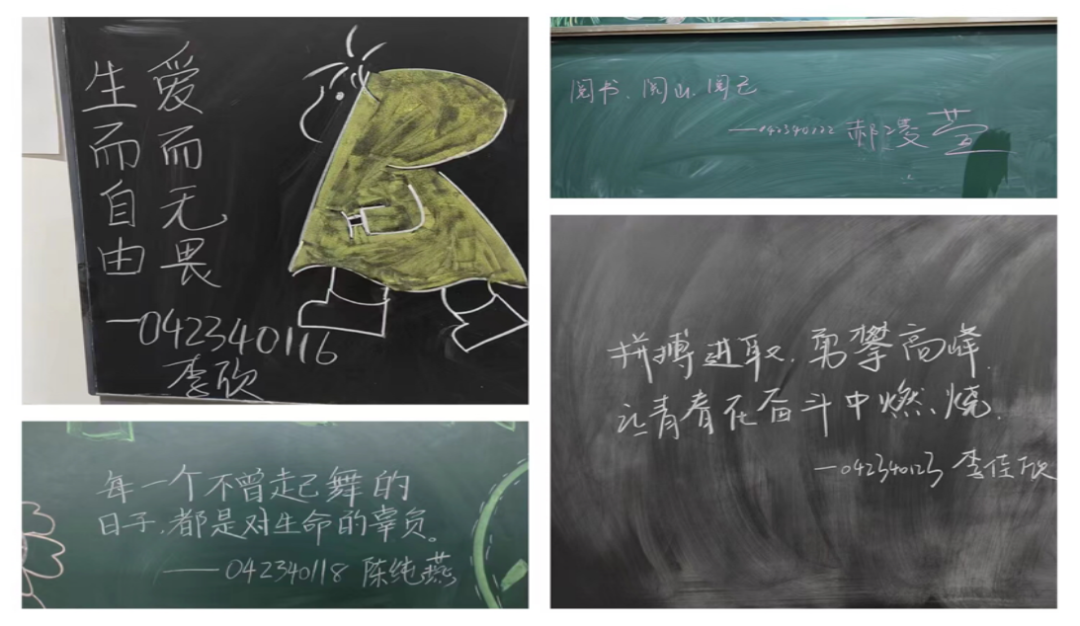 生而自由
爱而无畏
—042340116
李欣
阅书、阅山、阅己
——042340122 郝凌萱
每一个不曾起舞的
日子,都是对生命的辜负。
——042340118 陈纯燕
拼搏进取,勇攀高峰,
让青春在奋斗中燃烧.
—042340123 李佳欣